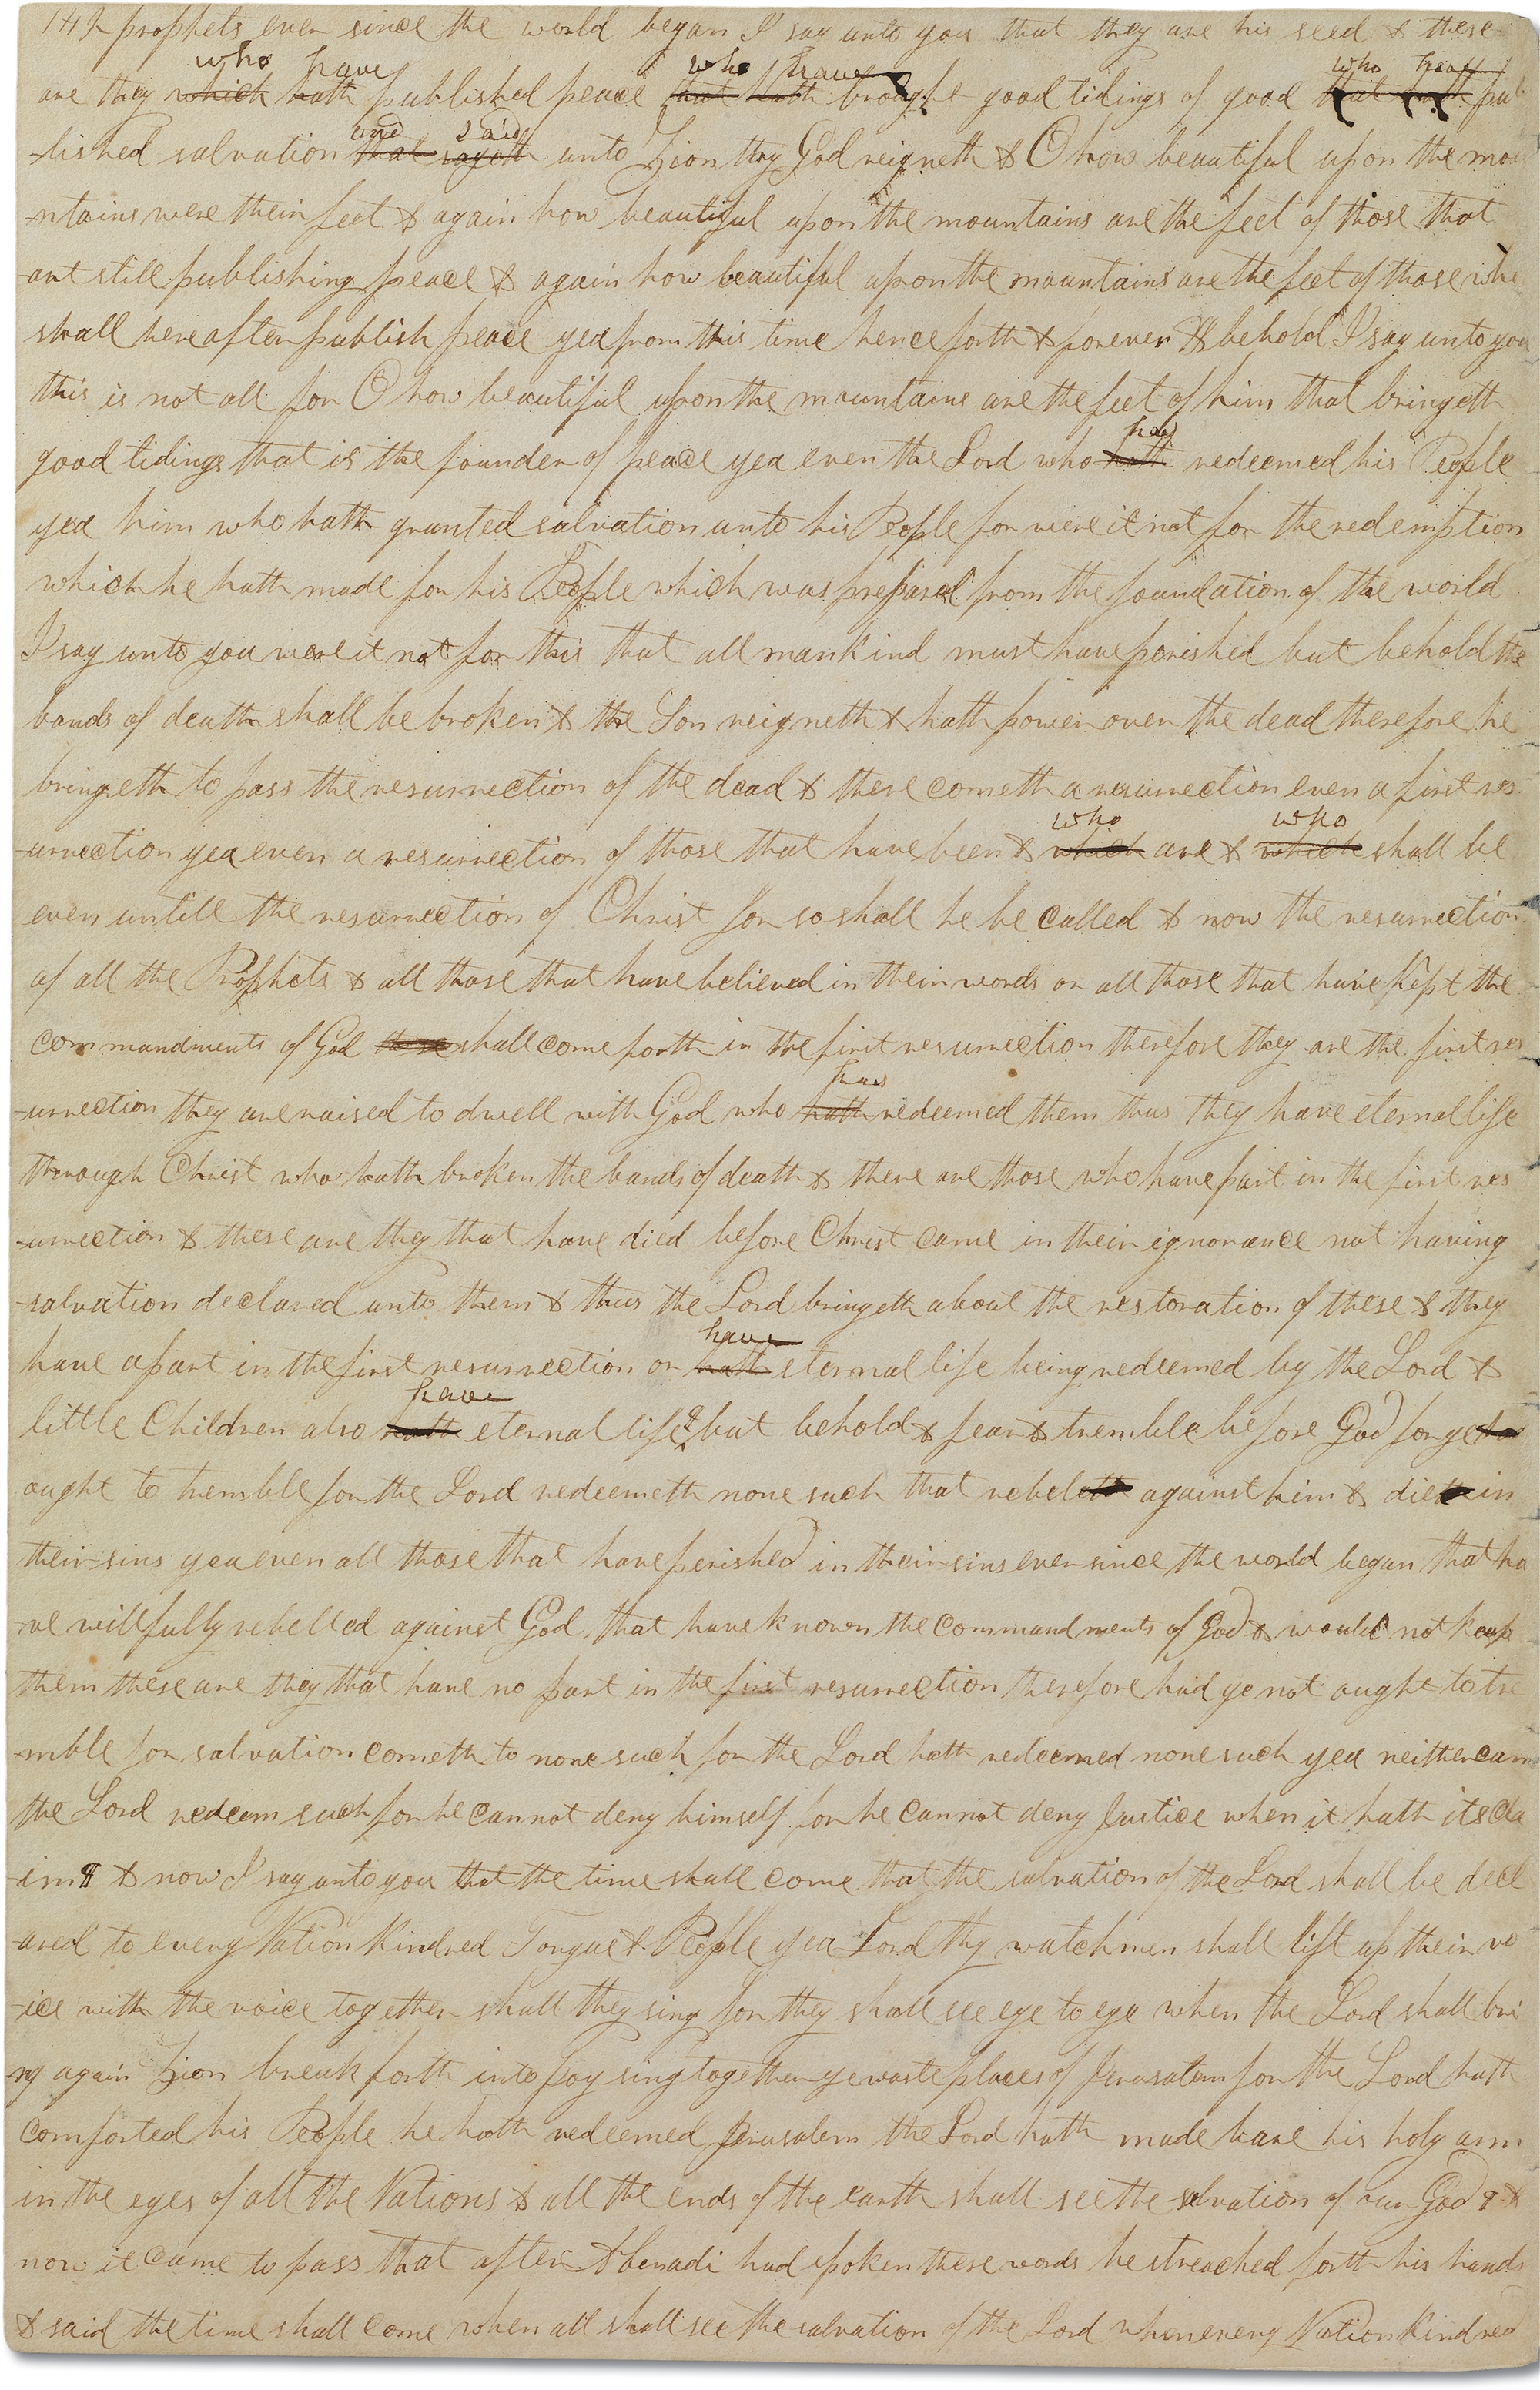 141 prophets ever since the world began I say unto you that they are his seed & these
who have who have who have
are they which hath published peace that hath brought good tidings of good that hath pub
and said
-lished salvation that sayeth unto Zion thy God reigneth & O how beautiful upon the mou
-ntains were their feet & again how beautiful upon the mountains are the feet of those that
are still publishing peace & again how beautiful upon the mountains are the feet of those who
shall hereafter publish peace yea from this time henceforth & forever & behold I say unto you
this is not all for O how beautiful upon the mountains are the feet of him that bringeth
has
good tidings that is the founder of peace yea even the Lord who hath redeemed his People
yea him who hath granted salvation unto his People for were it not for the redemption
which he hath made for his People which was prepared from the foundation of the world
I say unto you were it not for this that all mankind must have perished but behold the
bands of death shall be broken & the Son reigneth & hath power over the dead therefore he
bringeth to pass the resurrection of the dead & there cometh a resurrection even a first res
who who
-urrection yea even a resurrection of those that have been & which are & which shall be
even untill the resurrection of Christ for so shall he be called & now the resurrection
of all the Prophets & all those that have believed in their words or all those that have kept the
commandments of God these shall come forth in the first resurrection therefore they are the first res
has
-urrection they are raised to dwell with God who hath redeemed them thus they have eternal life
through Christ who hath broken the bands of death & there are those who have part in the first res
-urrection & these are they that have died before Christ came in their ignorance not having
salvation declared unto them & thus the Lord bringeth about the restoration of these & they
have
have a part in the first resurrection or hath eternal life being redeemed by the Lord &
have
little Children also hath eternal life but behold & fear & tremble before God for ye
ought to tremble for the Lord redeemeth none such that rebeleth against him & dieth in
their sins yea even all those that have perished in their sins ever since the world began that ha
-ve willfully rebelled against God that have known the commandments of God & would not keep
them these are they that have no part in the first resurrection therefore had ye not ought to tre
-mble for salvation cometh to none such for the Lord hath redeemed none such yea neither can
the Lord redeem such for he cannot deny himself for he cannot deny Justice when it hath its cla
-im & now I say unto you that the time shall come that the salvation of the Lord shall be decl
-ared to every Nation Kindred Tongue & People yea Lord thy watchmen shall lift up their vo
-ice with the voice together shall they sing for they shall see eye to eye when the Lord shall bri
ng again Zion break forth into Joy sing together ye waste places of Jerusalem for the Lord hath
comforted his People he hath redeemed Jerusalem the Lord hath made bare his holy arm
in the eyes of all the Nations & all the ends of the earth shall see the salvation of our God &
now it came to pass that after Abinadi had spoken these words he streached forth his hands
& said the time shall come when all shall see the salvation of the Lord when every Nation Kindred